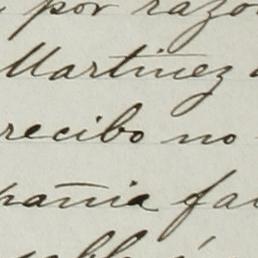 por razo
Martinez
recibo no
pañia fa